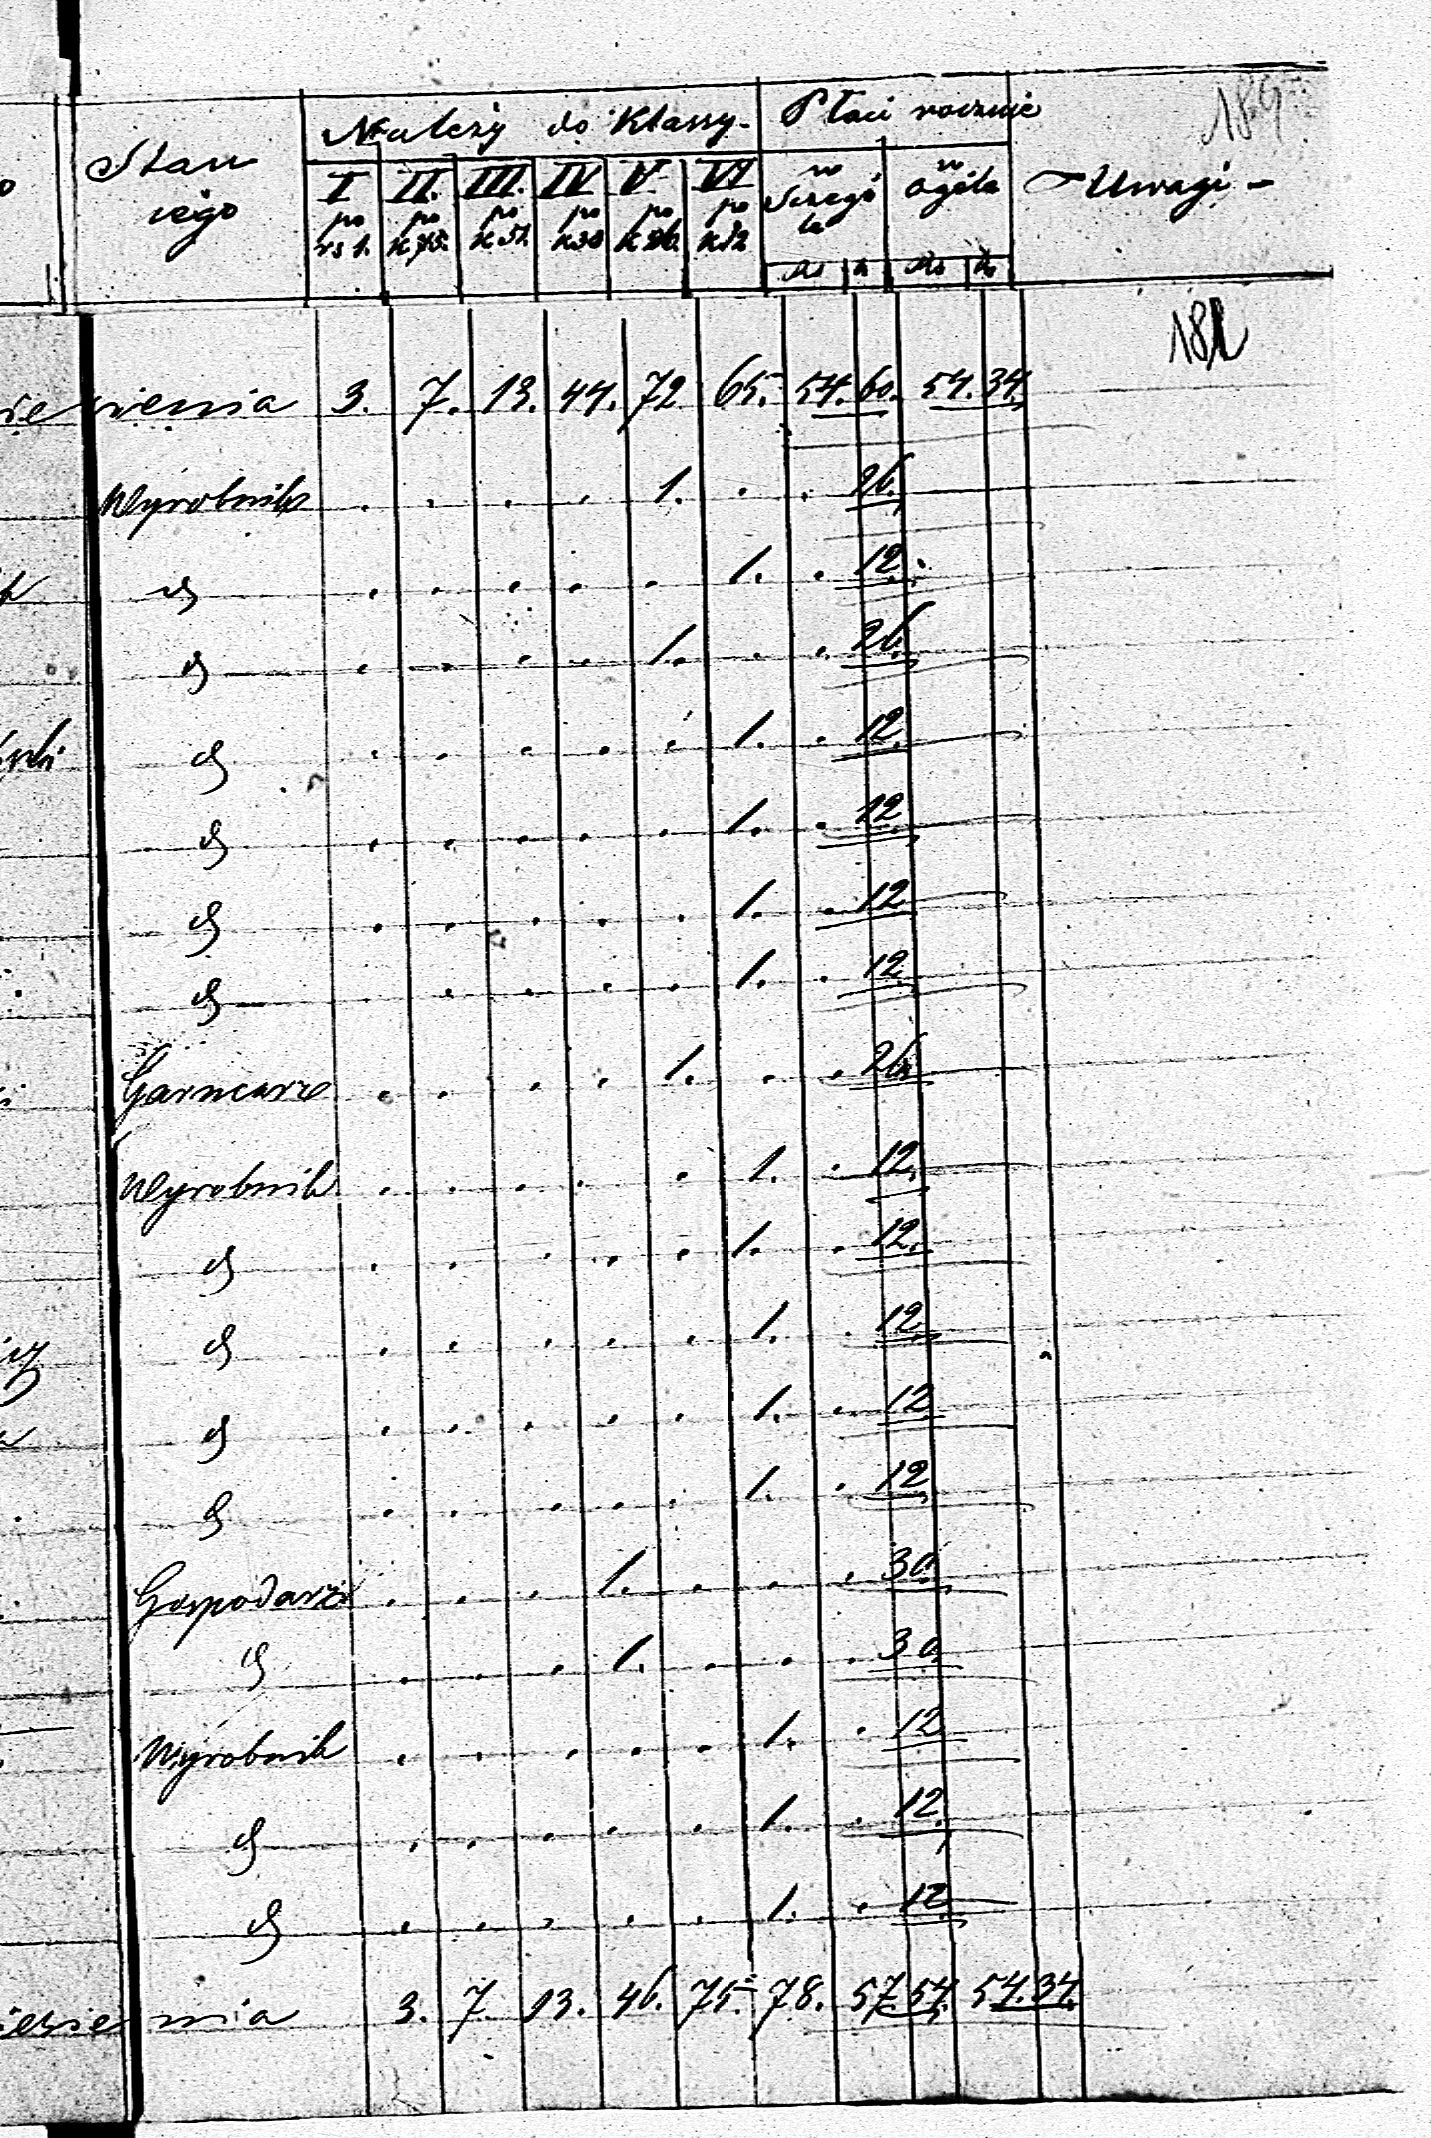 189
Stan Należy do Klassy Płaci rocznie
iego I II. III. IV V VI w Szczegó le w ogóle Uwagi
po rs 1. po k 75. po k 51. po k 30 po k 26. po k 12 Rs k Rs k
182
sienia 3. 7. 13. 44. 72 65. 54. 60. 54. 34.
Wyrobnik . . . . 1. . . 26.
d . . . . . 1. . 12.
d . . . . 1. . . 26.
d . . . . . 1. . 12.
d . . . . . 1. . 12
d . . . . . 1. . 12
d . . . . 1. . 12
Garncarz . . . . 1. . . 26.
Wyrobnik . . . . . 1. . 12.
d . . . . . 1. . 12.
d . . . . . 1. . 12
d . . . . . 1. . 12
d . . . . . 1. . 12
Gospodarz . . . 1. . . . 30.
d . . . 1. . . . 30.
Wyrobnik . . . . . 1. . 12
d . . . . . 1. . 12.
d . . . . . 1. . 12
iesie nia 3. 7. 13. 46. 75. 78. 57 54. 54. 34.